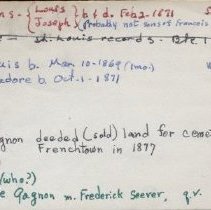 ns - { Louis } b & d. Feb 2 - 1871
Joseph } (Probably not sons of Francois
St. Louis records - Bk 1
uis b. Mar 10-1869 (mo.)
adore b. Oct-1-1871
gnon deeded (sold) land for ceme
Frenchtown in 1877
(who?)
e Gagnon m. Frederick Seever, q.v.